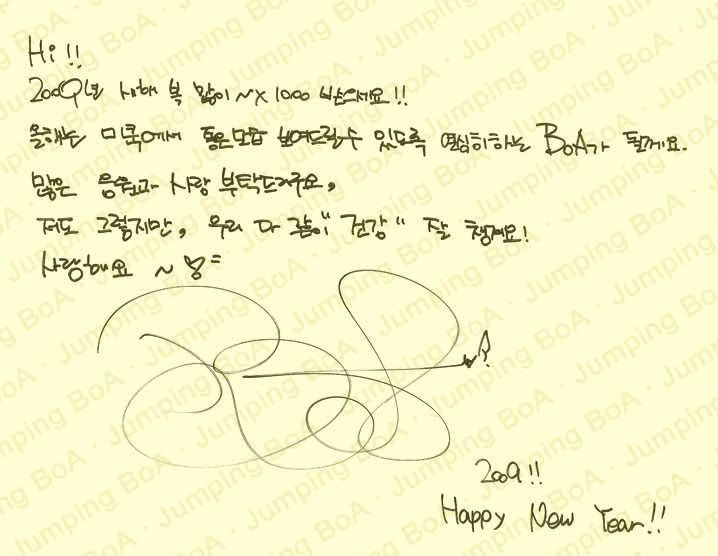 Hi!!
2009년 새해 복 많이~x1000 받으세요!!
올해는 미국에서 좋은모습 보여드릴수 있도록 열심히하는 BoA가 될게요.
많은 응원과 사랑 부탁드려구요,
저도 그렇지만, 우리 다 같이 "건강" 잘 챙겨요!
사랑해요 ~
2009!!
Happy New Year!!
Jumping BoA · Jumping BoA · Jumping BoA